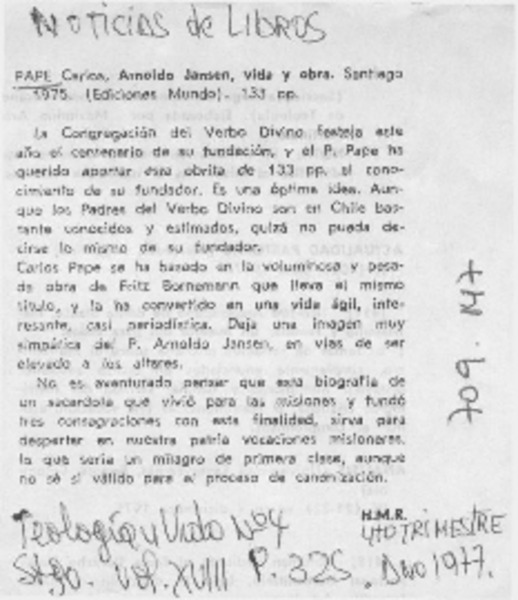 NOTICIAS de LIBROS
PAPE Carlos, Arnoldo Jansen, vida y obra. Santiago
1975. (Ediciones Mundo). 133 pp.
La Congregación del Verbo Divino festeja este
año el centenario de su fundación, y el P. Pape ha
querido aportar esta obrita de 133 pp. al cono-
cimiento de su fundador. Es una óptima idea. Aun-
que los Padres del Verbo Divino son en Chile bas-
tante conocidos y estimados, quizá no pueda de-
cirse lo mismo de su fundador.
Carlos Pape se ha basado en la voluminosa y pesa-
da obra de Fritz Bornemann que lleva el mismo
título, y la ha convertido en una vida ágil, inte-
resante, casi periodística. Deja una imagen muy
simpática del P. Arnoldo Jansen, en vías de ser
elevado a los altares.
No es aventurado pensar que esta biografía de
un sacerdote que vivió para las misiones y fundó
tres congregaciones con esta finalidad, sirva para
despertar en nuestra patria vocaciones misioneras,
lo que sería un milagro de primera clase, aunque
no sé si válido para el proceso de canonización.
H.M.R.
Teología y Vida Nº4
4to TRIMESTRE
Stgo. Vol. XVIII P. 325
. Año 1977.